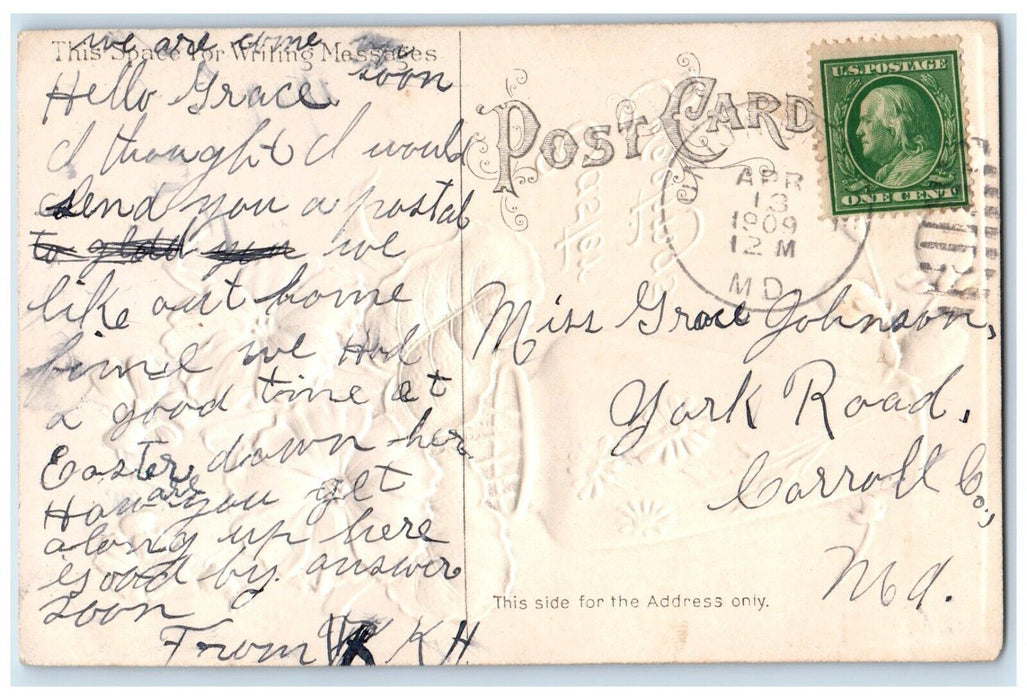 we are come
soon
This Space For Writing Messages
Hello Grace
I thought I would
send you a postal
to you we
like out home
fine we Had
a good time at
Easter down her
How are you get
along up here
Good by. answer
soon
From K H
POST CARD
U.S. POSTAGE
ONE CENT
APR
13
1909
12 M
MD.
Best
Easter
Miss Grace Johnson,
York Road,
Carroll Co.,
Md.
This side for the Address only.